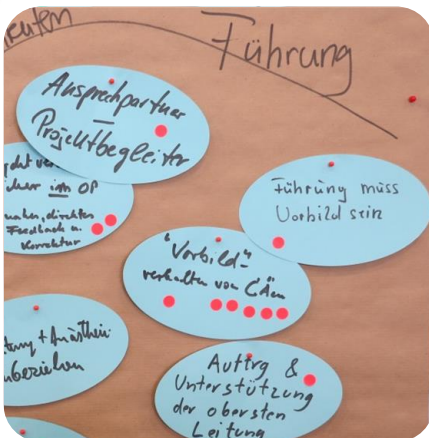 Führung
Ansprechpartner
–
Projektbegleiter
im OP
Feedback u.
Korrektur
Führung muss
Vorbild sein
"Vorbild"-
verhalten von CÄen
Auftrg &
Unterstützung
der obersten
Leitung